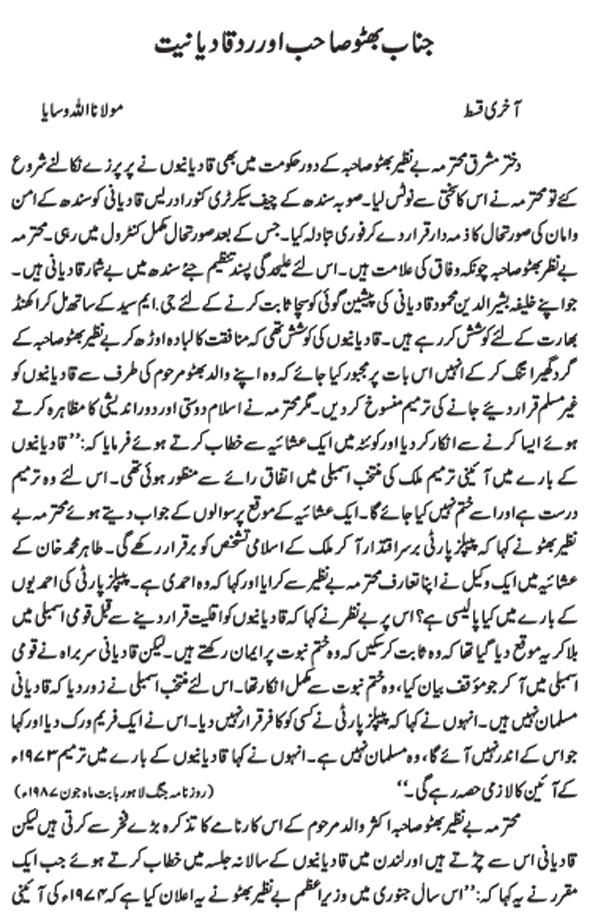 جناب بھٹو صاحب اور رد قادیانیت
آخری قسط
مولانا اللہ وسایا
دختر مشرق محترمہ بے نظیر بھٹو صاحبہ کے دور حکومت میں بھی قادیانیوں نے پر پرزے نکالنے شروع
کئے تو محترمہ نے اس کا سختی سے نوٹس لیا۔ صوبہ سندھ کے چیف سیکرٹری کنور ادریس قادیانی کو سندھ کے امن
وامان کی صورتحال کا ذمہ دار قرار دے کر فوری تبادلہ کیا۔ جس کے بعد صورتحال مکمل کنٹرول میں رہی۔ محترمہ
بے نظیر بھٹو صاحبہ چونکہ وفاق کی علامت ہیں۔ اس لئے علیحدگی پسند تنظیم جئے سندھ میں بے شمار قادیانی ہیں۔
جو اپنے خلیفہ بشیر الدین محمود قادیانی کی پیشین گوئی کو سچا ثابت کرنے کے لئے جی.ایم سید کے ساتھ مل کر اکھنڈ
بھارت کے لئے کوشش کر رہے ہیں۔ قادیانیوں کی کوشش تھی کہ منافقت کا لبادہ اوڑھ کر بے نظیر بھٹو صاحبہ کے
گرد گھیرا تنگ کر کے انہیں اس بات پر مجبور کیا جائے کہ وہ اپنے والد بھٹو مرحوم کی طرف سے قادیانیوں کو
غیر مسلم قرار دیئے جانے کی ترمیم منسوخ کر دیں۔ مگر محترمہ نے اسلام دوستی اور دور اندیشی کا مظاہرہ کرتے
ہوئے ایسا کرنے سے انکار کر دیا اور کوئٹہ میں ایک عشائیہ سے خطاب کرتے ہوئے فرمایا کہ: ’’قادیانیوں
کے بارے میں آئینی ترمیم ملک کی منتخب اسمبلی میں اتفاق رائے سے منظور ہوئی تھی۔ اس لئے وہ ترمیم
درست ہے اور اسے ختم نہیں کیا جائے گا۔ ایک عشائیہ کے موقع پر سوالوں کے جواب دیتے ہوئے محترمہ بے
نظیر بھٹو نے کہا کہ پیپلز پارٹی برسراقتدار آ کر ملک کے اسلامی تشخص کو برقرار رکھے گی۔ طاہر محمد خان کے
عشائیہ میں ایک وکیل نے اپنا تعارف محترمہ بے نظیر سے کرایا اور کہا کہ وہ احمدی ہے۔ پیپلز پارٹی کی احمدیوں
کے بارے میں کیا پالیسی ہے؟ اس پر بے نظر نے کہا کہ قادیانیوں کو اقلیت قرار دینے سے قبل قومی اسمبلی میں
بلا کر یہ موقع دیا گیا تھا کہ وہ ثابت کر سکیں کہ وہ ختم نبوت پر ایمان رکھتے ہیں۔ لیکن قادیانی سربراہ نے قومی
اسمبلی میں آ کر جو مؤقف بیان کیا، وہ ختم نبوت سے مکمل انکار تھا۔ اس لئے منتخب اسمبلی نے زور دیا کہ قادیانی
مسلمان نہیں ہیں۔ انہوں نے کہا کہ پیپلز پارٹی نے کسی کو کافر قرار نہیں دیا۔ اس نے ایک فریم ورک دیا اور کہا
جو اس کے اندر نہیں آئے گا، وہ مسلمان نہیں ہے۔ انہوں نے کہا قادیانیوں کے بارے میں ترمیم ۱۹۷۳ء
کے آئین کا لازمی حصہ رہے گی۔‘‘ (روزنامہ جنگ لاہور بابت ماہ جون ۱۹۸۷ء)
محترمہ بے نظیر بھٹو صاحبہ اکثر والد مرحوم کے اس کارنامے کا تذکرہ بڑے فخر سے کرتی ہیں لیکن
قادیانی اس سے چڑتے ہیں اور لندن میں قادیانیوں کے سالانہ جلسہ میں خطاب کرتے ہوئے جب ایک
مقرر نے یہ کہا کہ: ’’اس سال جنوری میں وزیراعظم بے نظیر بھٹو نے یہ اعلان کیا ہے کہ ۱۹۷۴ء کی آئینی